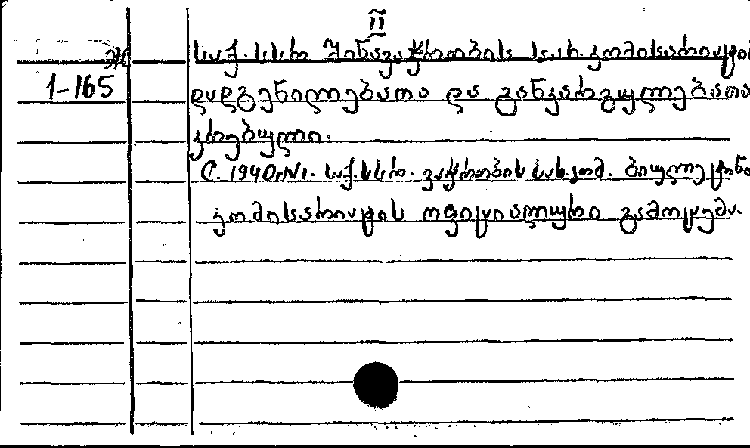 II
საქ. სსრ შინავაჭრობის სახ. კომისარიატის
1-165
დადგენილებათა და განკარგულებათა
კრებული.
С. 1940, N1. საქ. სსრ. ვაჭრობის სახ. კომ. ბიულეტენი
კომისარიატის ოფიციალური გამოცემა.